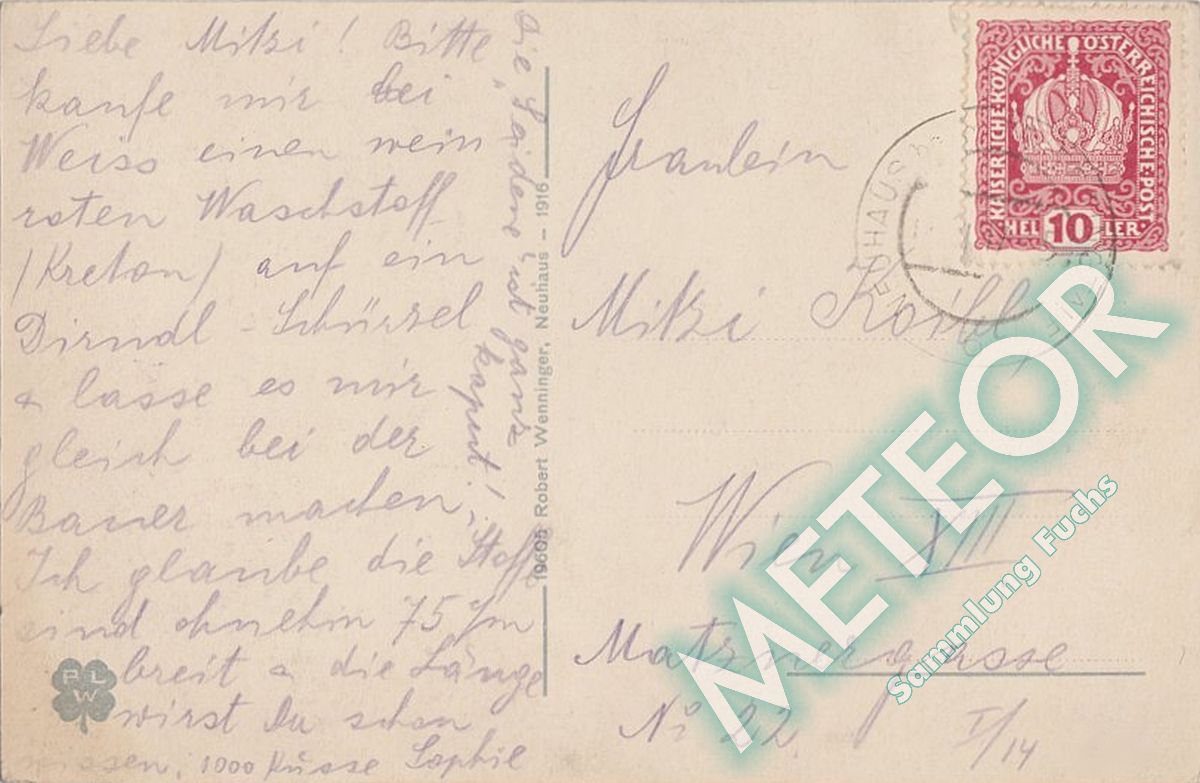 Liebe Mitzi! Bitte
kaufe mir bei
Weiss einen wein
roten Waschstoff
(Kreton) auf ein
Dirndl-Schürzel
& lasse es mir
gleich bei der
Bauer machen,
Ich glaube die Stoffe
sind ohnehin 75 c/m
breit & die Länge
wirst Du schon
wissen, 1000 Küsse Sophie
die Seidene ist ganz
kaput!
19608 Robert Wenninger, Neuhaus – 1916
PLW
KAISERLICHE KÖNIGLICHE ÖSTERREICHISCHE POST
HEL 10 LER
NEUHAUS
Fräulein
Mitzi
Wien XIII
Matznergasse
Nr 22
I/14
METEOR
Sammlung Fuchs